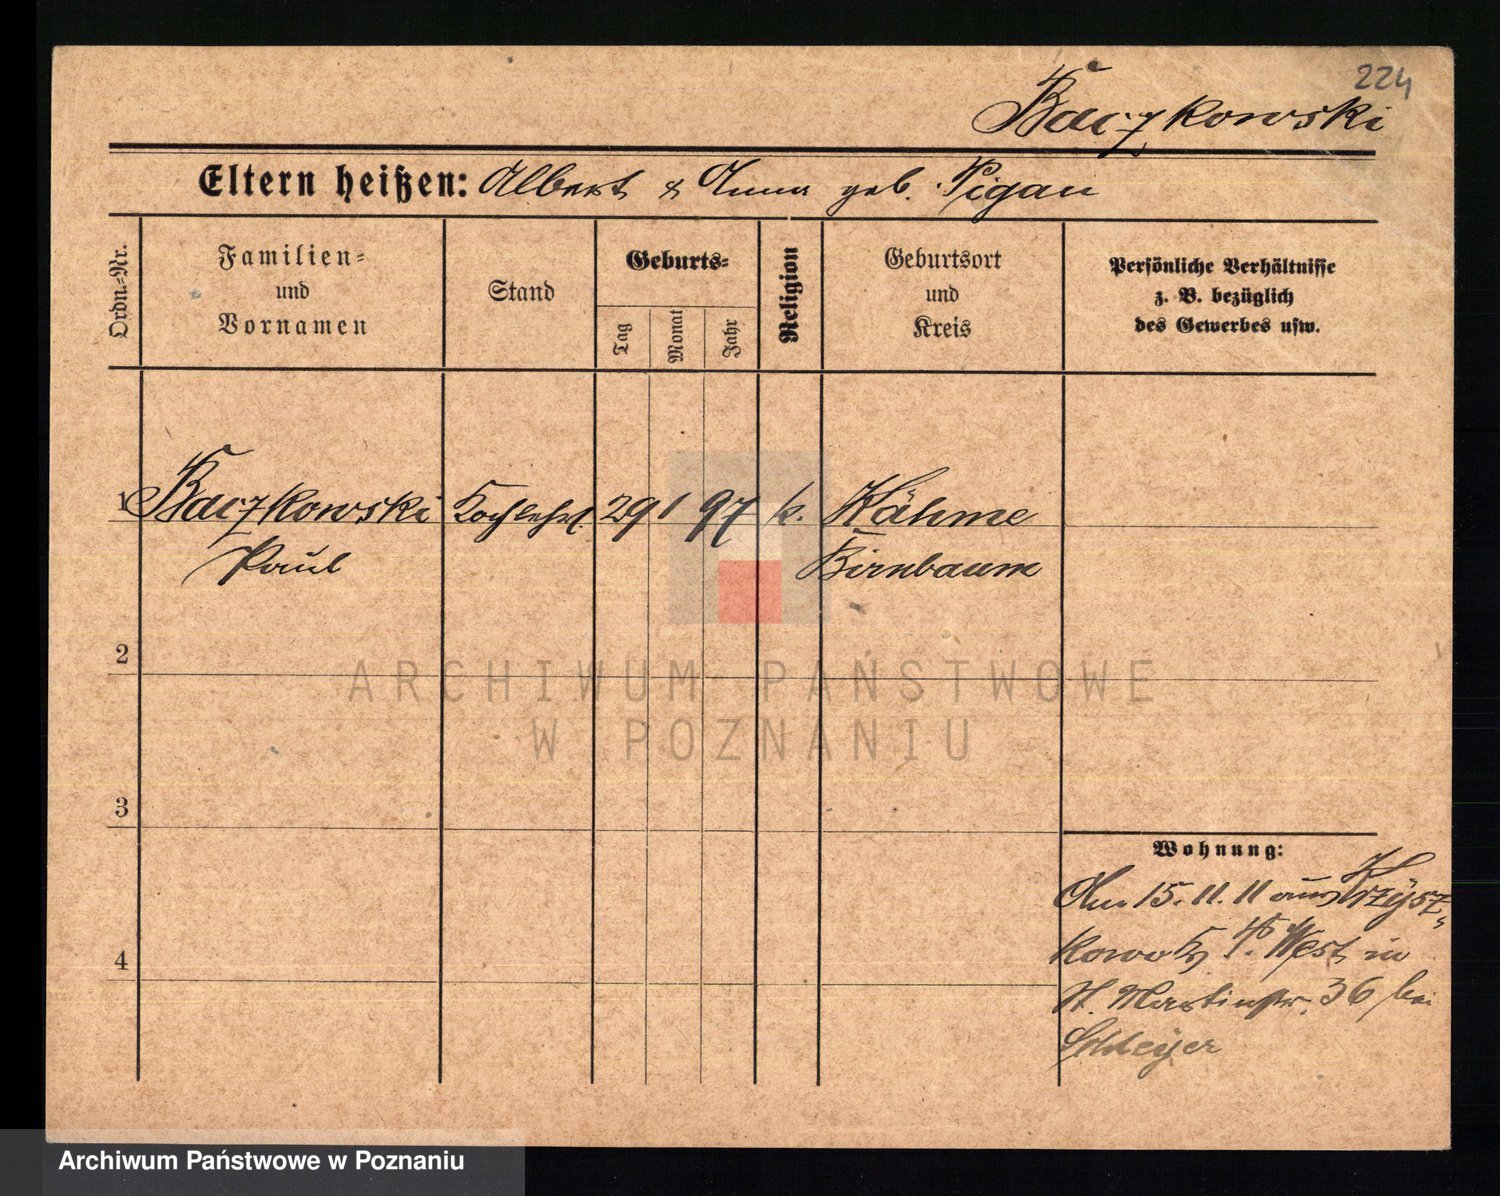 224
Baczkowski
Eltern heißen: Albert & Anna geb. Pigan
Ordn.-Nr.
Familien-
und
Vornamen
Stand
Geburts-
Tag
Monat
Jahr
Religion
Geburtsort
und
Kreis
Persönliche Verhältnisse
z. B. bezüglich
des Gewerbes usw.
1 Baczkowski Kochlehrl. 29 1 97 k. Kähme
Paul Birnbaum
2
ARCHIWUM PAŃSTWOWE
W POZNANIU
3
Wohnung:
Am 15. 11. 11 aus Krzysz-
kowo P. West in
St. Martinstr. 36 bei
Schleyer
4
Archiwum Państwowe w Poznaniu